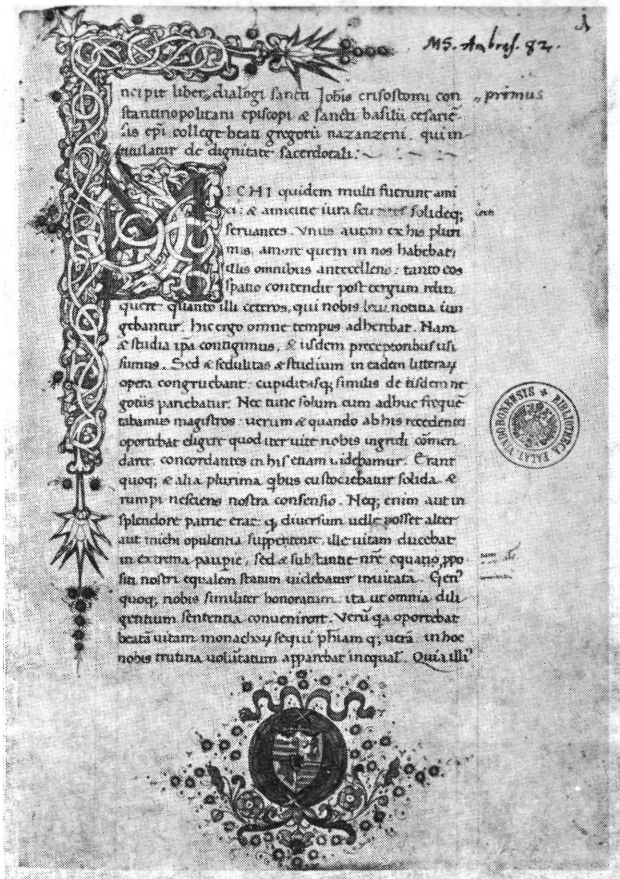 MS. Ambras. 82.
1
ncipit liber, dialogi sancti Johis crisostomi con
primus
stantinopolitani episcopi & sancti basilii cesariē
sis epī college beati gregorii nazanzeni. qui in
titulatur de dignitate sacerdotali.
M
ICHI quidem multi fuerunt ami
ci: & amicitie iura solideq;
seruantes. Vnus autem ex his pluri
mis, amore quem in nos habebat,
illis omnibus antecellens: tanto eos
spatio contendit post tergum relin
quere quanto illi ceteros, qui nobis notitia iun
gebantur. hic ergo omne tempus adherebat. Nam
& studia ipa contigimus, & iisdem preceptoribus usi
sumus. Sed & sedulitas & studium in eadem litteraꝝ
opera congruebant. cupiditasq; similis de iisdem ne
gotiis pariebatur. Nec tunc solum cum adhuc frequē
tabamus magistros: uerum & quando ab his recedentes
oportebat eligere quod iter uite nobis ingredi cōmen
daret. concordantes in his etiam uidebamur. Erant
quoq; & alia plurima qbus custodiebatur solida. &
rumpi nesciens nostra consensio. Neq; enim aut in
splendore patrie erat q, diuersum posset alter
aut michi opulentia suppetente, ille uitam ducebat
in extrema paupie, sed & substantie nrē equatio ppo
siti nostri equalem statum uidebatur imitata. Gen⁹
quoq; nobis similiter honoratum. ita ut omnia dili
gentium sententia conuenirent. Verū qa oportebat
beatā uitam monachoꝝ sequi phiam q; uerā. in hoc
nobis trutina uolūtatum apparebat inequal. Quia illi⁹
BIBLIOTHECA PALAT. VINDOBONENSIS